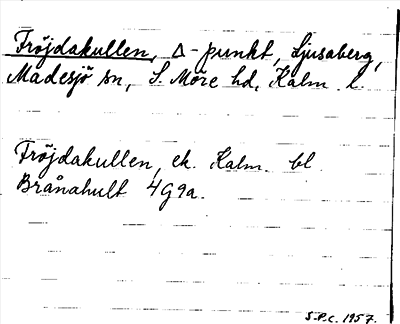 Fröjdakullen, Δ-punkt, Ljusaberg,
Madesjö sn, S. Möre hd, Kalm. l.
Fröjdakullen, ek. Kalm. bl
Brånahult 4G9a.
S.P.c. 1957.